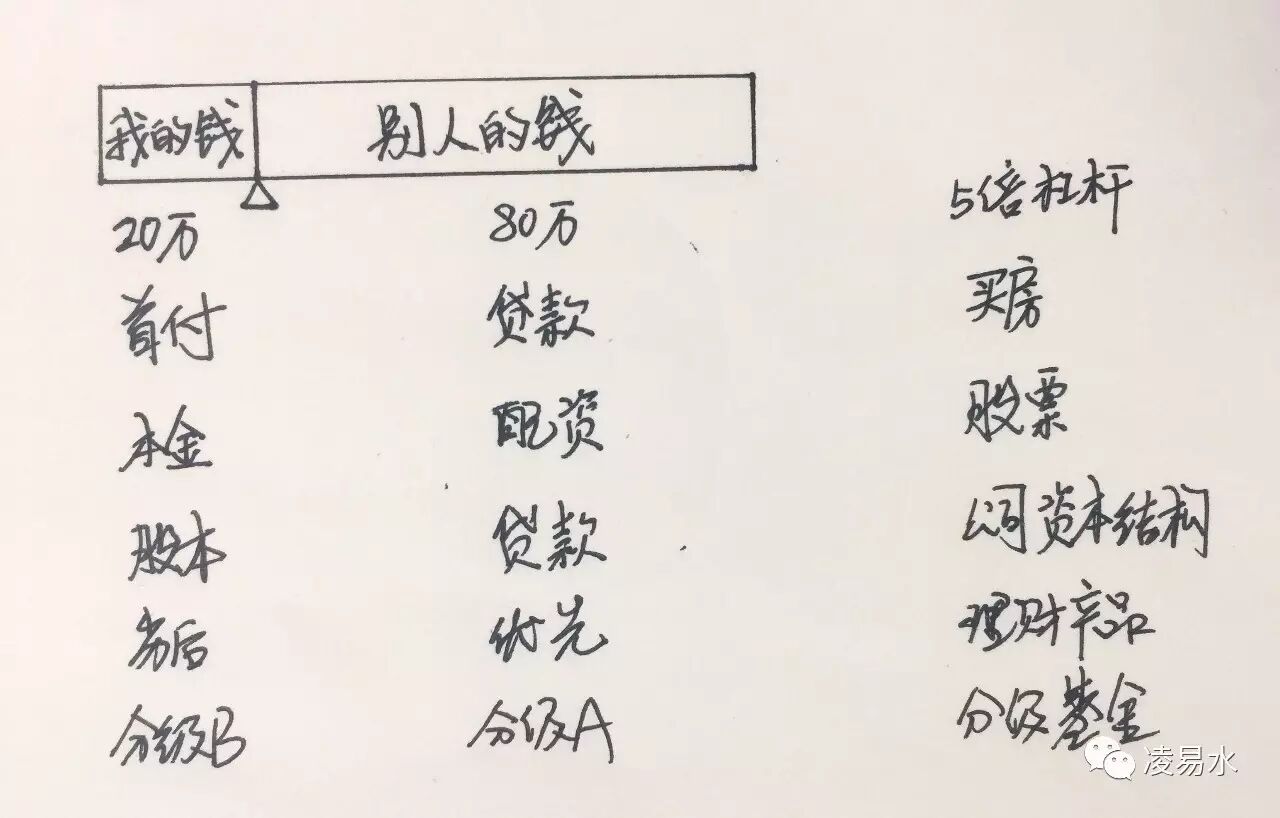 我的钱 别人的钱
20万 80万 5倍杠杆
首付 贷款 买房
本金 配资 股票
股本 贷款 公司资本结构
劣后 优先 理财产品
分级B 分级A 分级基金
凌易水